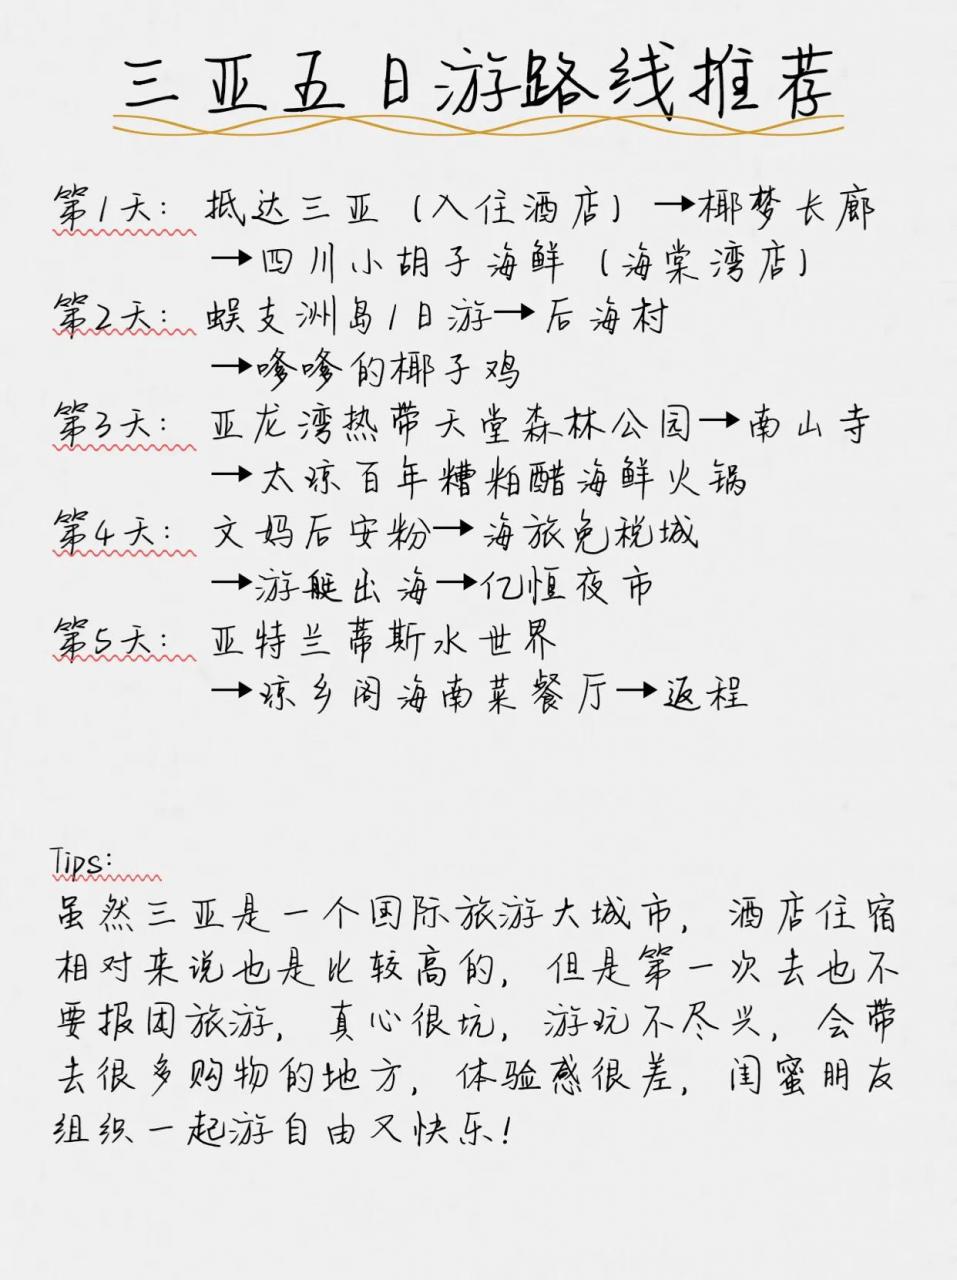 三亚五日游路线推荐
第1天：抵达三亚（入住酒店）→椰梦长廊
→四川小胡子海鲜（海棠湾店）
第2天：蜈支洲岛1日游→后海村
→嗲嗲的椰子鸡
第3天：亚龙湾热带天堂森林公园→南山寺
→太琼百年糟粕醋海鲜火锅
第4天：文妈后安粉→海旅免税城
→游艇出海→亿恒夜市
第5天：亚特兰蒂斯水世界
→琼乡阁海南菜餐厅→返程
Tips:
虽然三亚是一个国际旅游大城市，酒店住宿
相对来说也是比较高的，但是第一次去也不
要报团旅游，真心很坑，游玩不尽兴，会带
去很多购物的地方，体验感很差，闺蜜朋友
组织一起游自由又快乐！